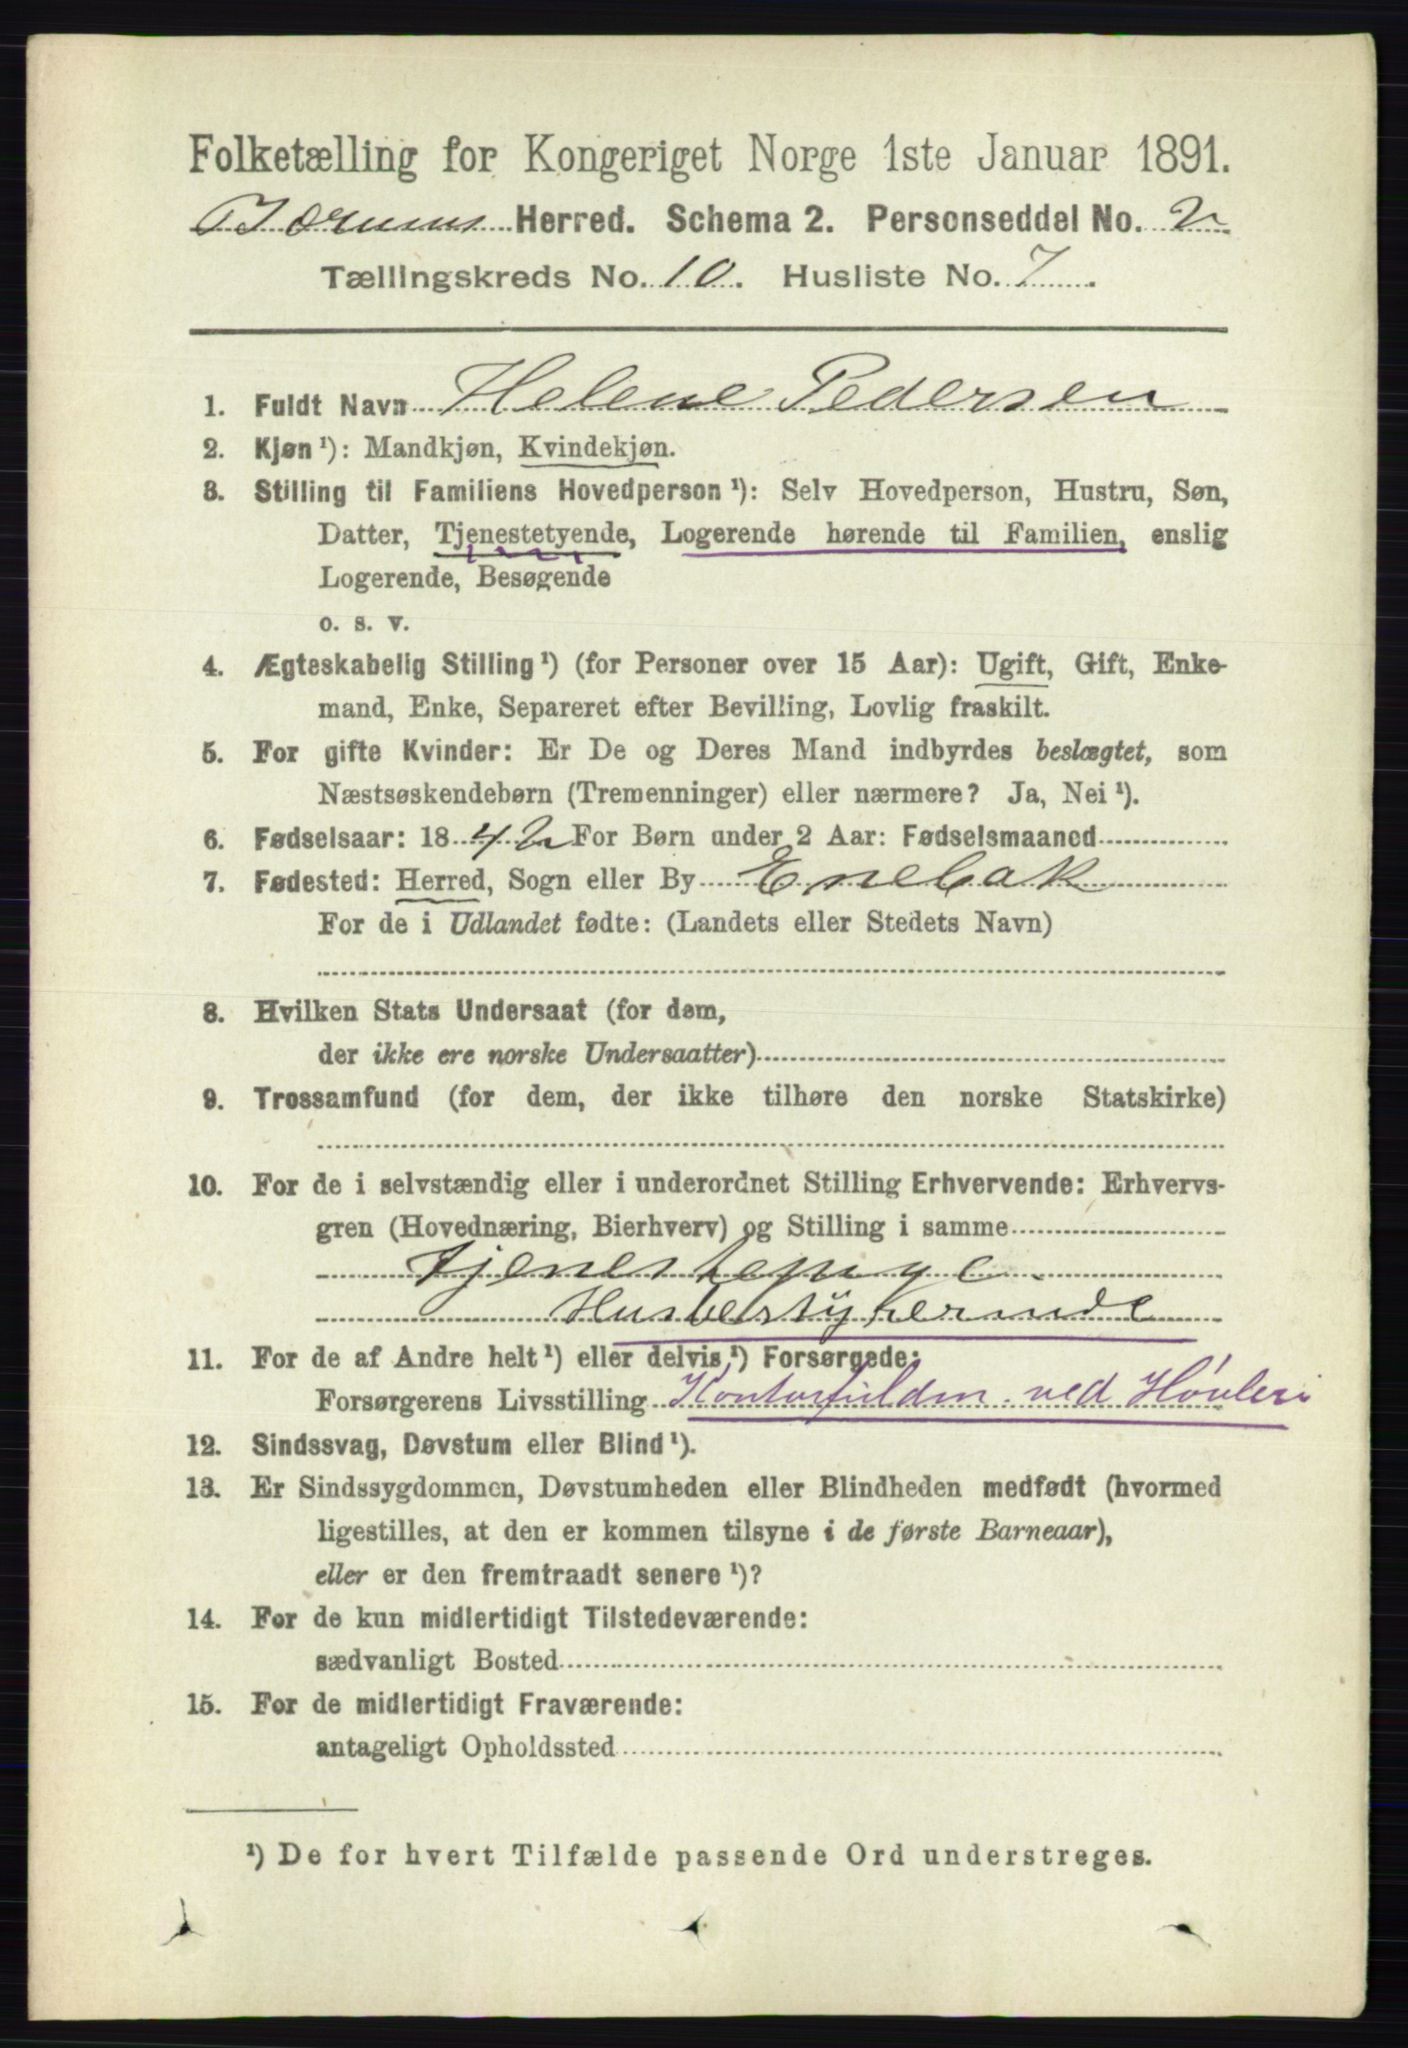 Folketælling for Kongeriget Norge 1ste Januar 1891.
Bærums Herred. Schema 2. Personseddel No. 2
Tællingskreds No. 10. Husliste No. 7.
1. Fuldt Navn Helene Pedersen
2. Kjøn ¹): Mandkjøn, Kvindekjøn.
3. Stilling til Familiens Hovedperson ¹): Selv Hovedperson, Hustru, Søn,
Datter, Tjenestetyende, Logerende hørende til Familien, enslig
Logerende, Besøgende
o. s. v.
4. Ægteskabelig Stilling ¹) (for Personer over 15 Aar): Ugift, Gift, Enke-
mand, Enke, Separeret efter Bevilling, Lovlig fraskilt.
5. For gifte Kvinder: Er De og Deres Mand indbyrdes beslægtet, som
Næstsøskendebørn (Tremenninger) eller nærmere? Ja, Nei ¹).
6. Fødselsaar: 1842 For Børn under 2 Aar: Fødselsmaaned
7. Fødested: Herred, Sogn eller By Enebak
For de i Udlandet fødte: (Landets eller Stedets Navn)
8. Hvilken Stats Undersaat (for dem,
der ikke ere norske Undersaatter)
9. Trossamfund (for dem, der ikke tilhøre den norske Statskirke)
10. For de i selvstændig eller i underordnet Stilling Erhvervende: Erhvervs-
gren (Hovednæring, Bierhverv) og Stilling i samme
Tjenestepige
Husbestyrerinde
11. For de af Andre helt ¹) eller delvis ¹) Forsørgede:
Forsørgerens Livsstilling ved Høvleri
12. Sindssvag, Døvstum eller Blind ¹).
13. Er Sindssygdommen, Døvstumheden eller Blindheden medfødt (hvormed
ligestilles, at den er kommen tilsyne i de første Barneaar),
eller er den fremtraadt senere ¹)?
14. For de kun midlertidigt Tilstedeværende:
sædvanligt Bosted
15. For de midlertidigt Fraværende:
antageligt Opholdssted
¹) De for hvert Tilfælde passende Ord understreges.